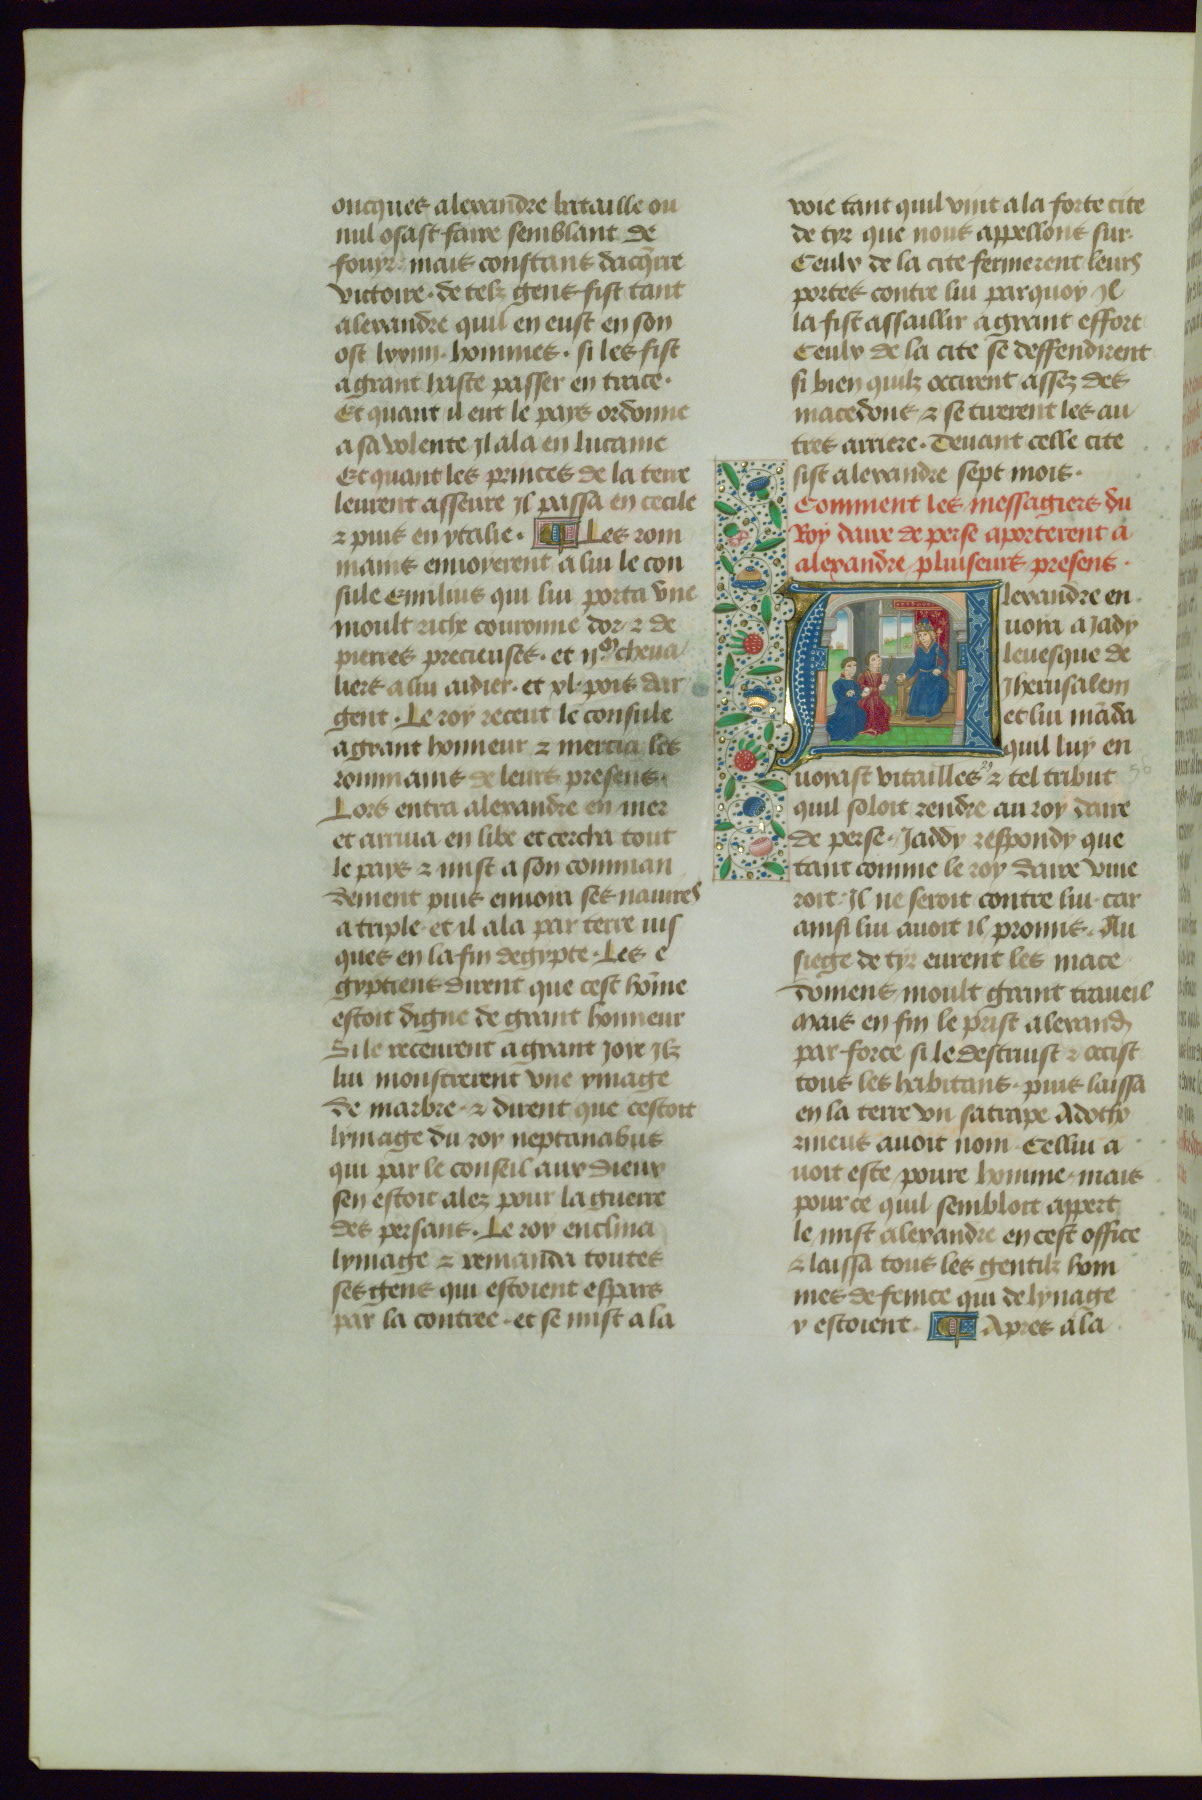 oncques alexandre bataille ou
nul osast faire semblant de
fouyr. mais constans dacq̃rre
victoire. de telz gens fist tant
alexandre quil en eust en son
ost lxxiiii. hommes. si les fist
a grant haste passer en trace.
Et quant il eut le pays ordonne
a sa volente Jl ala en lucanie
Et quant les princes de la terre
leurent asseure Jl passa en cecile
⁊ puis en ytalie. Les rom
mains enuoyerent a lui le con
sule Emilius qui lui porta vne
moult riche couronne dor. ⁊ de
pierres precieuses. et ijᵐ cheua
liers a lui aidier. et xl. pois dar
gent. Le roy receut le consule
a grant honneur ⁊ mercia les
rommains de leurs presens.
Lors entra alexandre en mer
et arriua en libe et cercha tout
le pays ⁊ mist a son comman
dement puis enuoia ses nauires
a triple. et il ala par terre ius
ques en la fin degypte. Les e
gyptiens dirent que cest hõme
estoit digne de grant honneur
Si le receurent a grant ioye Jlz
lui monstrerent vne ymage
de marbre. ⁊ dirent que cestoit
lymage du roy neptanabus
qui par le conseil aux dieux
sen estoit alez pour la guerre
des persans. Le roy enclina
lymage ⁊ remanda toutes
ses gens qui estoient espars
par la contree. et se mist a la
voie tant quil vint a la forte cite
de tyr que nous appellons sur.
Ceulx de la cite fermerent leurs
portes contre lui parquoy Jl
la fist assaillir a grant effort
Ceulx de la cite se deffendirent
si bien quilz occirent assez des
macedons ⁊ se tirerent les au
tres arriere. Deuant celle cite
sist alexandre sept mois.
Comment les messagiers du
Roy daire de perse aporterent a
alexandre pluiseurs presens.
Alexandre en
uoia a Jady
leuesque de
Jherusalem
et lui mãda
quil luy en
uoiast vitailles ⁊ tel tribut
quil soloit rendre au roy daire
de perse. Jaddy respondy que
tant comme le roy daire viue
roit. Jl ne seroit contre lui. car
ainsi lui auoit il promis. Au
siege de tyr eurent les mace
doniens moult grant traueil
Mais en fin le prist alexand̾
par force si le destruist ⁊ occist
tous les habitans. puis laissa
en la terre vn satrape Adothy
rineus auoit nom. Cellui a
uoit este poure homme. mais
pour ce quil sembloit appert
le mist alexandre en cest office
⁊ laissa tous les gentilz hom
mes de fenice qui de lynage
y estoient. Apres a la